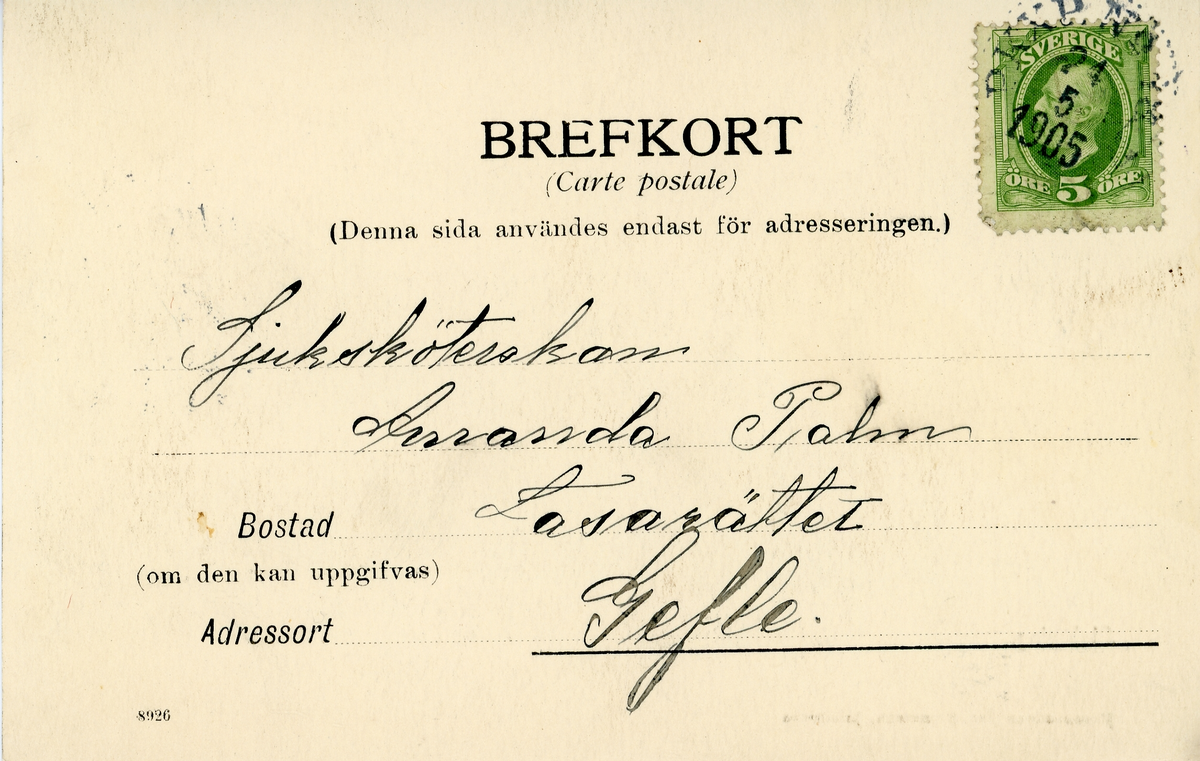 BREFKORT
(Carte postale)
(Denna sida användes endast för adresseringen.)
SVERIGE
21
5
1905
ÖRE 5 ÖRE
Sjuksköterskan
Amanda Palm
Lasarättet
Bostad
(om den kan uppgifvas)
Gefle.
Adressort
8926